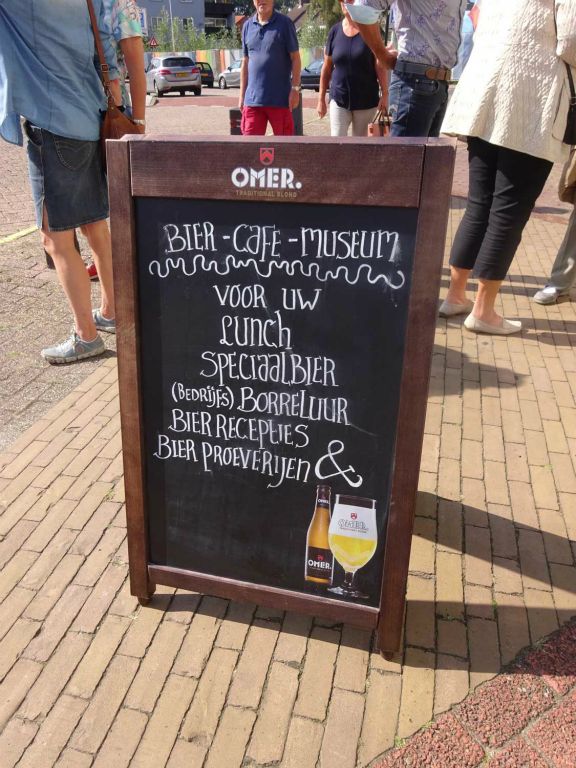 OMER.
TRADITIONAL BLOND
BIER - CAFE - MUSEUM
VOOR UW
LUNCH
SPECIAALBIER
(BEDRIJFS) BORRELUUR
BIER RECEPTIES
BIER PROEVERIJEN &
OMER.
OMER.